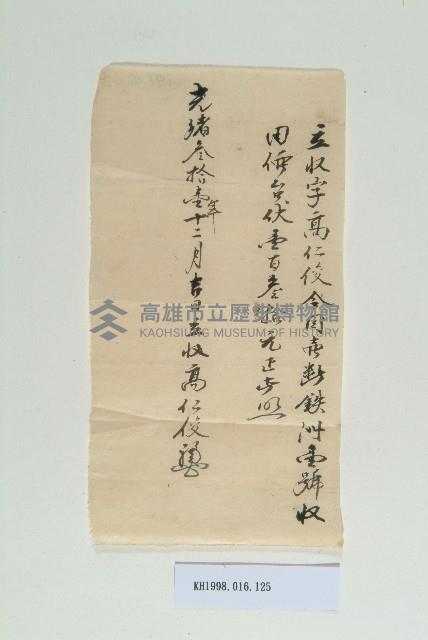 立收字高仁俊今因賣断鉄洲壹號收
用價台伏壹百叁拾元正步照
光緒叁拾壹年十二月吉日立收高仁俊
高雄市立歷史博物館
KAOHSIUNG MUSEUM OF HISTORY
KH1998.016.125